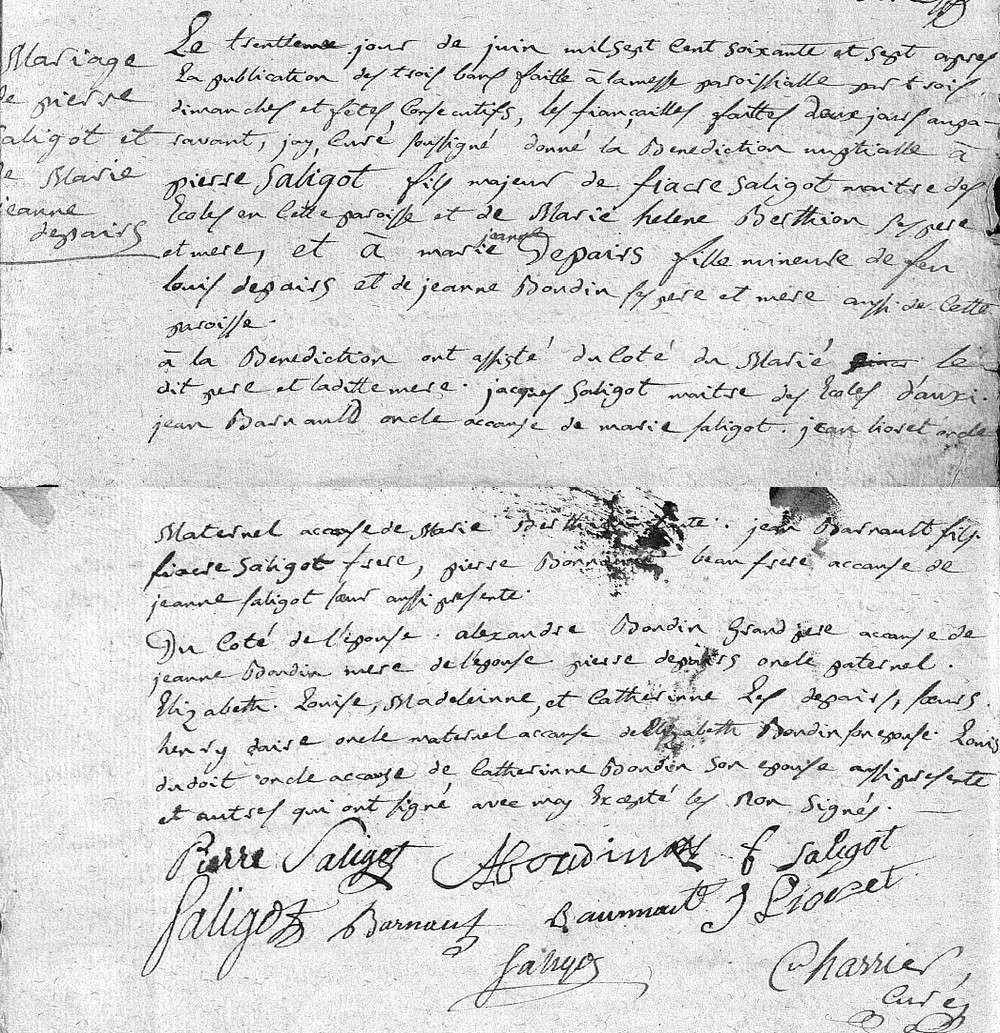 Mariage
de pierre
Saligot et
de Marie
jeanne
depairs
Le trentieme jour de juin mil sept Cent soixante et sept apres
La publication des trois bans faitte à la messe paroissialle par trois
dimanches et fêtes Consecutifs, les fiançailles faittes deux jours aupa-
ravant, jay, Curé soussigné donné la Benediction nuptialle à
pierre Saligot fils majeur de fiacre Saligot maitre des
Ecoles en Cette paroisse et de Marie helene Berthion ses pere
et mere, et à marie jeanne Depairs fille mineure de feu
louis depairs et de jeanne Boudin ses pere et mere aussi de Cette
paroisse.
à la Benediction ont assisté du Coté du Marié le
dit pere et laditte mere. jacques Saligot maitre des Ecoles d'auxi.
jean Barnault oncle accause de marie saligot. jean lioret oncle
Maternel accause de Marie jean Barnault fils.
fiacre Saligot frere, pierre beau frere accause de
jeanne saligot sœur aussi presente.
Du Coté de l'épouse. alexandre Boudin Grand pere accause de
jeanne Boudin mere de l'epouse pierre depairs oncle paternel.
Elizabeth. Louise, Madeleinne, et Catherinne Les depairs, sœurs.
henry daire oncle maternel accause de Elizabeth Boudin son epouse. Louis
dudoit oncle accause de Catherinne Boudin son epouse aussi presente
et autres qui ont signé avec moy Excepté les Non Signés.
Pierre Saligot ABoudin f Saligot
Saligot Barnaut Baurnault J Lioret
Saligot Charrier,
Curé